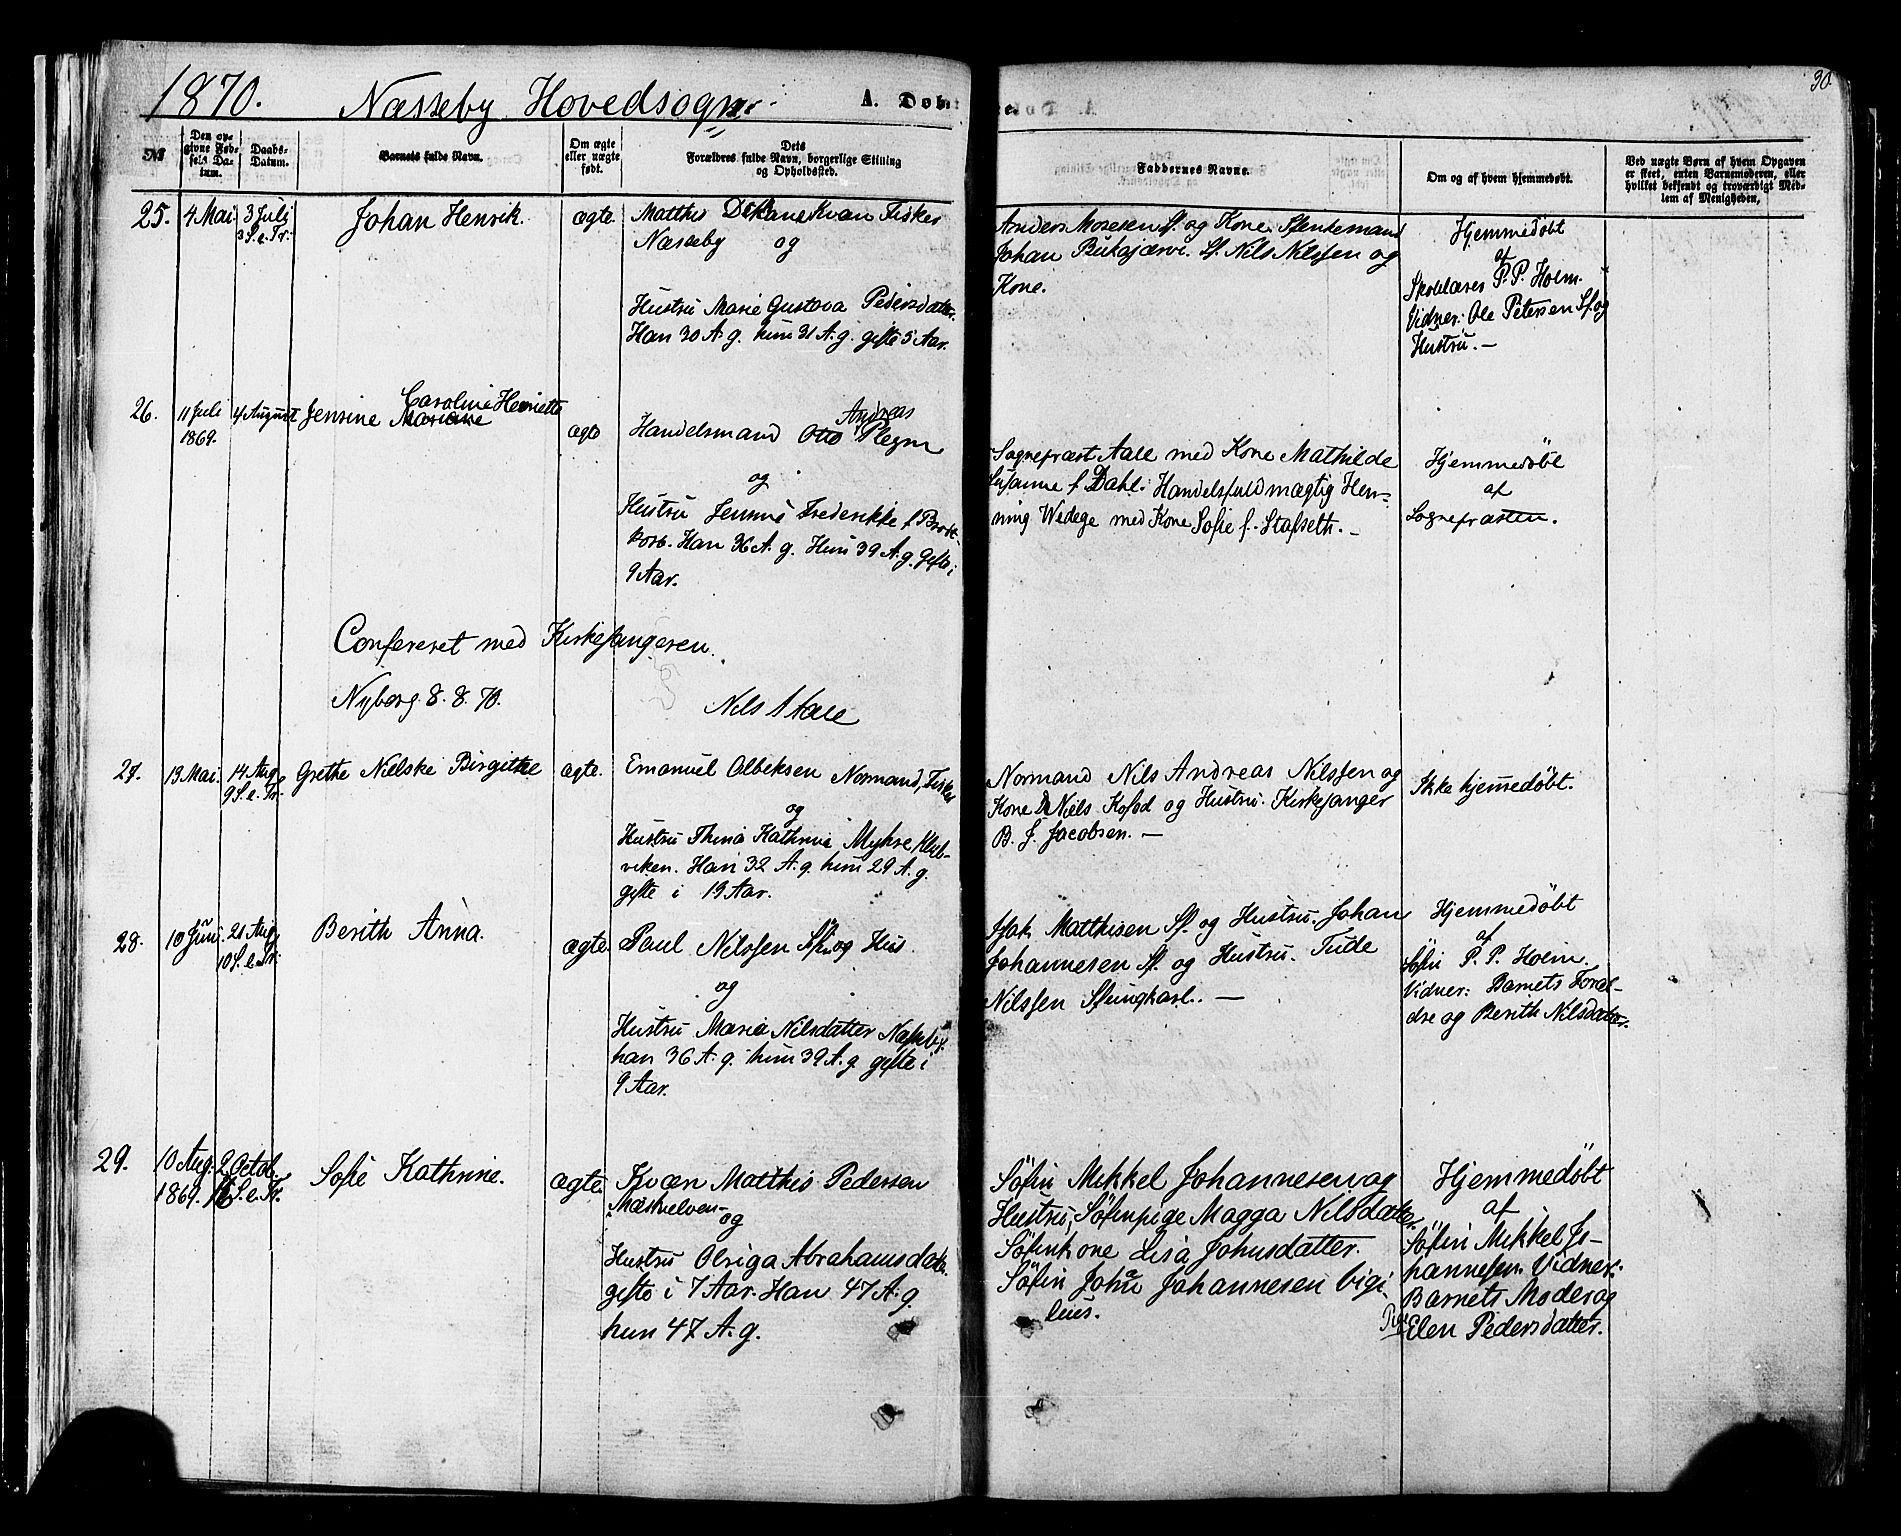 1870. Næsseby Hovedsogn.
A. Døbte.
30.
№
Den opgivne Fødsels Datum.
Daabs-Datum.
Barnets fulde Navn.
Om ægte eller uægte født.
Dets Forældres fulde Navn, borgerlige Stilling og Opholdssted.
Faddernes Navne.
Om og af hvem hjemmedøbt.
Ved uægte Børn af hvem Opgaven er skeet, enten Barnemoderen, eller hvilket bekjendt og troværdigt Medlem af Menigheden.
25. 4 Mai 3 Juli
3 S. e. Tr:
Johan Henrik.
ægte
Matthis Kvæn Fisker
Næsseby og
Hustru Marie Gustava Pedersdatter.
Han 30 A. g. hun 31 A. g. gifte 5 Aar.
Anders Mosesen Sf. og Kone. Slentemand
Johan Bukajærvi. Sf. Nils Nilssen og
Kone.
Hjemmedøbt
af
Skolelærer P. P. Holm.
Vidner: Ole Petersen Sf. og
Hustru. –
26. 11 Juli 4 August
1869.
Jensine Mariane Caroline Henriette
ægte
Handelsmand Otto Andreas Plegm
og
Hustru Jensine Frederikke f. Brodt-
korb. Han 36 A. g. Hun 39 A. g. gifte i
9 Aar.
Sognepræst Aall med Kone Mathilde
Susanne f. Dahl. Handelsfuldmægtig Hen-
ning Wedege med Kone Sofie f. Stafseth. –
Hjemmedøbt
af
Sognepræsten.
Confereret med Kirkesangeren.
Nyborg 8. 8. 70.
Nils Aall
27. 13 Mai. 14 Aug
9 S. e. Tr.
Grethe Nielske Birgitte
ægte.
Emanuel Olbeksen Normand, Fisker
og
Hustru Thina Kathrine Myhre Klub-
viken. Han 32 A. g. hun 29 A. g.
gifte i 13 Aar.
Normand Nils Andreas Nilssen og
Kone Niels Kofod og Hustru. Kirkesanger
B. J. Jacobsen. –
Ikke hjemmedøbt.
28. 10 Juni. 21 Aug
10 S. e. Tr:
Berith Anna.
ægte.
Paul Nilssen Sfin og Hus
og
Hustru Maria Nilsdatter Næsseby.
han 36 A. g. hun 39 A. g gifte i
9 Aar.
Isak Matthisen Sf. og Hustru. Johan
Johannesen Sf. og Hustru. Tude
Nilssen Sf ungkarl. –
Hjemmedøbt
af
Søfin P. P. Holm.
Vidner: Barnets Foræl-
dre og Berith Nilsdatter.
29. 10 Aug: 2 Octob.
1869. 16 S. e. Tr.
Sofie Kathrine.
ægte.
Kvæn Matthis Pedersen
Mæskelven
og
Hustru Olriga Abrahamsdatter.
gifte i 7 Aar. Han 47 A. g.
hun 47 A. g.
Søfin Mikkel Johannesen og
Hustru, Søfinpige Magga Nilsdatter
Søfinkone Lisa Johnsdatter.
Søfin Johan Johannesen Vigi
lius.
Hjemmedøbt
af
Søfin Mikkel Jo-
hannesen. Vidner:
Barnets Moder og
Pige Elen Pedersdatter.